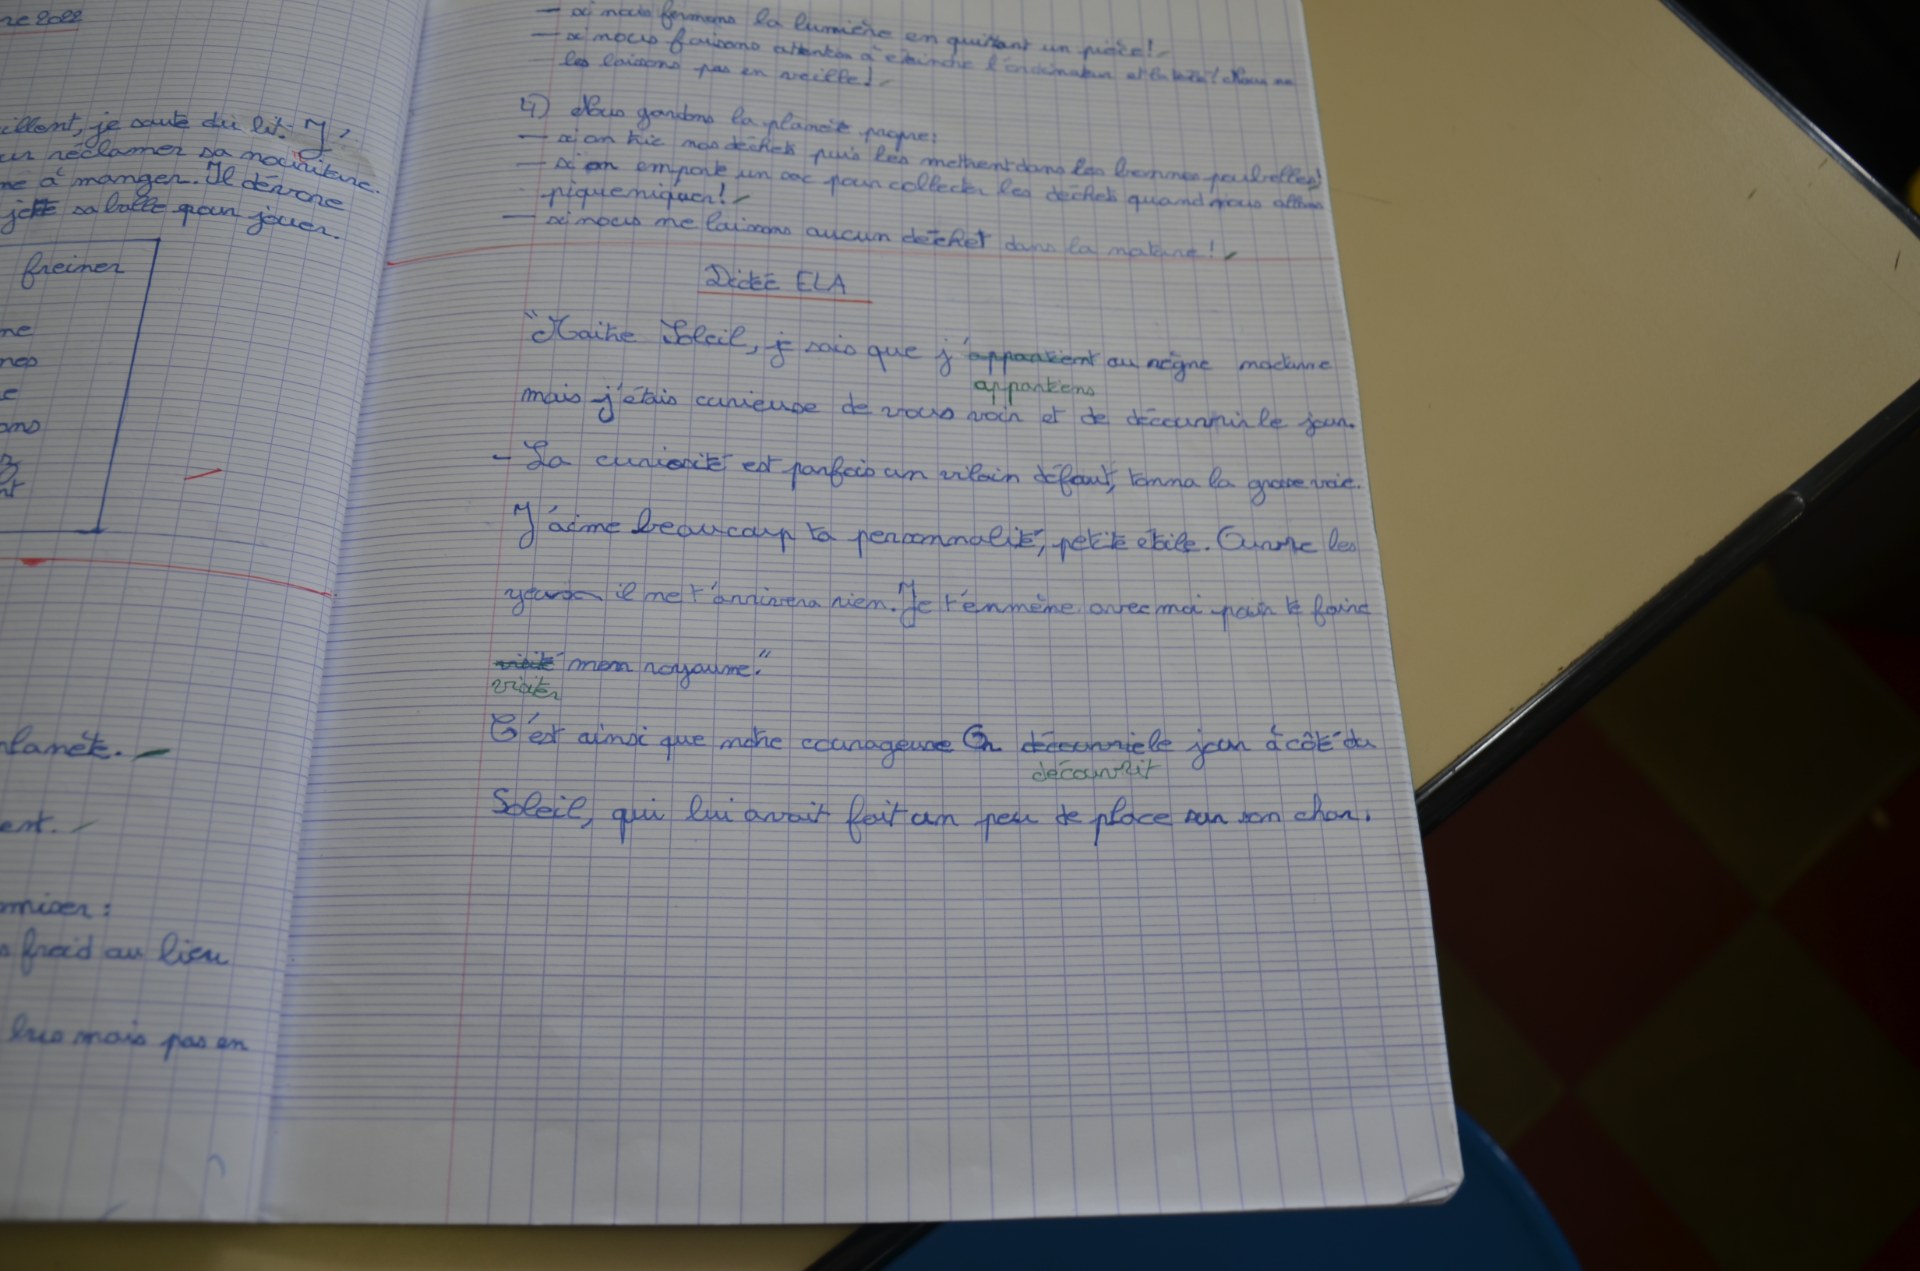 re 2022
illent, je saute du lit. J'
ur réclamer sa nourriture.
né à manger. Il dévore
jette sa balle pour jouer.
freiner
ne
nes
e
ons
z
nt
planète.
ent.
omiser :
froid au lieu
lus mais pas en
- si nous fermons la lumière en quittant un pièce!
- si nous faisons attention à éteindre l'ordinateur et la télé! Nous ne
les laissons pas en veille!
4) Nous gardons la planète propre:
- si on trie nos déchets puis les mettent dans les bonnes poubelles!
- si on emporte un sac pour collecter les déchets quand nous allons
piqueniquer!
- si nous ne laissons aucun déchet dans la nature!
Dictée ELA
"Maître Soleil, je sais que j'appartient au règne nocturne
appartiens
mais j'étais curieuse de vous voir et de découvrir le jour.
- La curiosité est parfois un vilain défaut, tonna la grosse voix.
J'aime beaucoup ta personnalité, petite étoile. Ouvre les
yeux il ne t'arrivera rien. Je t'emmène avec moi pour te faire
visité mon royaume."
visiter
C'est ainsi que notre courageuse On découvrie le jour à côté du
découvrit
Soleil, qui lui avait fait un peu de place sur son char.